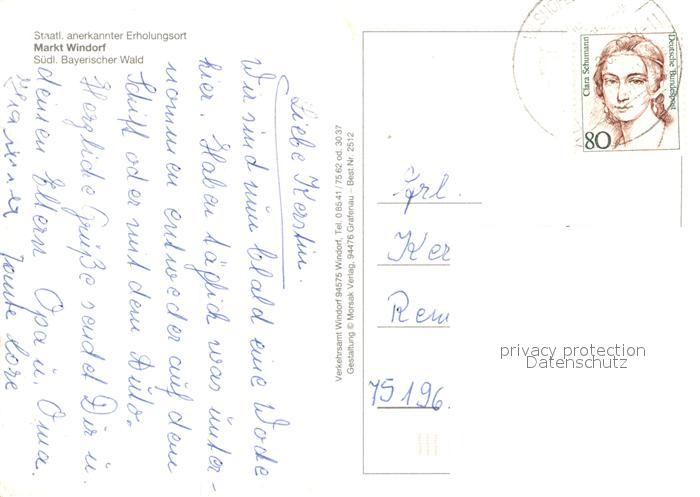 Staatl. anerkannter Erholungsort
Markt Windorf
Südl. Bayerischer Wald
Liebe Kerstin.
Wir sind nun bald eine Woche
hier. Haben täglich was unter-
nommen entweder auf dem
Schiff oder mit dem Auto.
Herzliche Grüße sendet Dir u.
deinen Eltern Opa u. Oma.
Tante Lore
Verkehrsamt Windorf 94575 Windorf, Tel. 0 85 41 / 75 62 od. 30 37
Gestaltung © Morsak Verlag, 94476 Grafenau – Best.Nr. 2512
Clara Schumann
Deutsche Bundespost
80
Frl.
Ker
Rem
75196.
privacy protection
Datenschutz